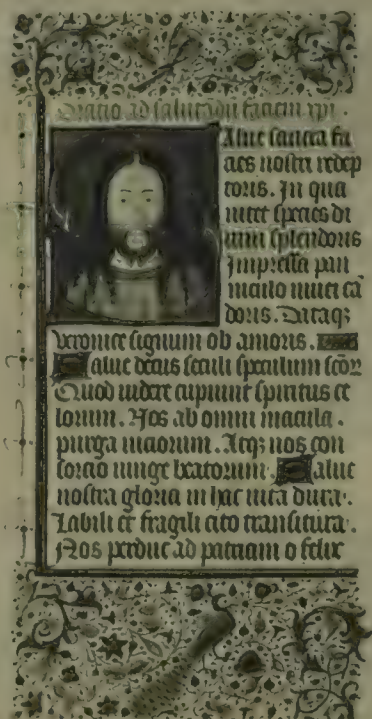 Oratio ad salutādū faciem xpi.
Salue sancta fa
cies nostri redep
toris. In qua
nitet species di
uini splendoris
Impressa pan
niculo niuei cā
doris. Dataq;
veronice signum ob amoris.
Salue decus seculi speculum scōꝝ
Quod uidere cupiunt spiritus ce
lorum. Nos ab omni macula.
purga uiciorum. Atq; nos con
sorcio iunge beatorum. Salue
nostra gloria in hac uita dura.
Labili et fragili cito transitura.
Nos perduc ad patriam o felix